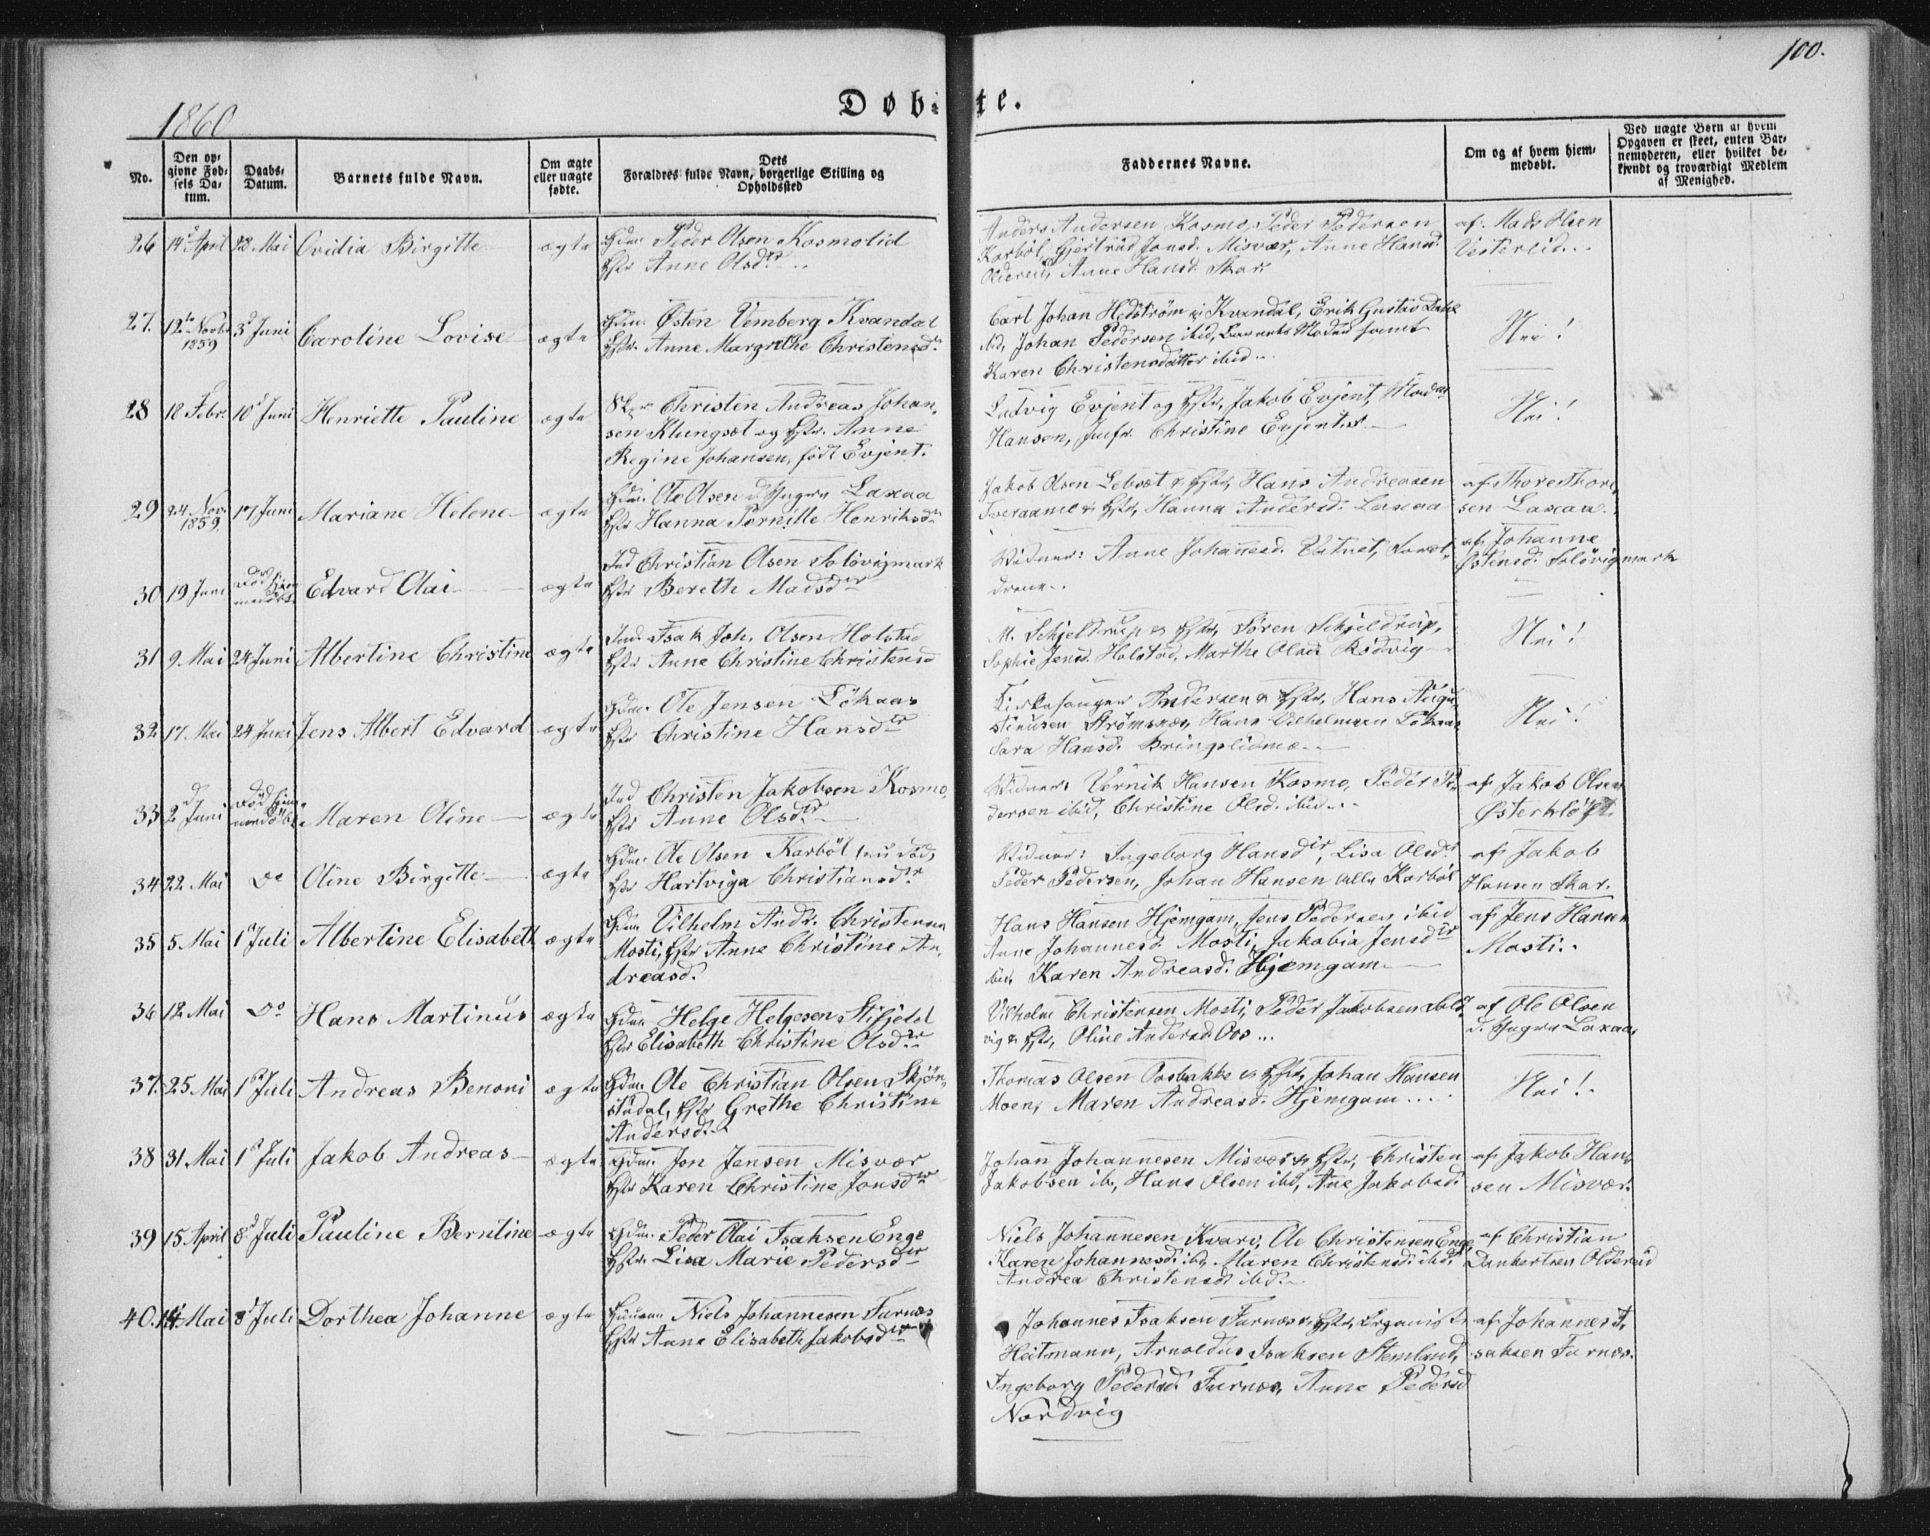 100.
1860
Døbte.
No.
Den opgivne Fødsels Datum.
Daabs-Datum.
Barnets fulde Navn.
Om ægte eller uægte fødte.
Dets Forældres fulde Navn, borgerlige Stilling og Opholdssted
Faddernes Navne.
Om og af hvem hjemmedøbt.
Ved uægte Børn af hvem Opgaven er skeet, enten Barnemoderen, eller hvilket bekjendt og troværdigt Medlem af Menighed.
26 14 April 28 Mai Ovidia Birgitte ægte
Gdm. Peder Olsen Kosmolid
Hstr Anne Olsdtr
Anders Andersen Kosmo, Peder Pedersen
Karbøl, Gjertrud Jonsd. Misvær, Anne Hansd.
Anne Hansd. Skar
af Mads Olsen
Vesterlid.
27. 12te Novbr 1859 3d Juni Caroline Lovise ægte
Gdm. Østen Vemberg Kvandal
Hstr. Anne Margrethe Christensd.
Carl Johan Hedström i Kvandal, Erik Gustav
Johan Pedersen ibid, Barnets Moder samt
Karen Christensdatter ibid
Nei!
28 18 Febr. 10d Juni Henriette Pauline ægte
Christen Andreas Johan-
sen Klungset og Hstr. Anne
Regine Johansen, født Evjent.
Ludvig Evjent og Hstr, Jakob Evjent, Madam
Hansen, Jmfr. Christine Evjenth
Nei!
29 24 Nov. 1859 17 Juni Mariane Helene ægte
Gdm. Ole Olsen d. Yngre Laxaa
Hstr Hanna Pernille Henriksdr
Jakob Olsen Lebsæt & Hstr, Hans Andreasen
Tveraamo & Hstr, Hanna Andersd. Laxaa
af Thore Thore-
sen Laxaa.
30 19 Juni død hjemmedøbt Edvard Olai ægte
Ind Christian Olsen Soløvigmark
Hstr Bereth Madsdtr
Vidner: Anne Johannesd. Vatnet,
af Johanne
Østensd. Soløvigmark
31 9. Mai 24 Juni Albertine Christine ægte
Ind. Isak Joh. Olsen Holstad
Hstr Anne Christine Christensd
M. Schjeldrup & Hstr, Søren Schjeldrup,
Sophie Jensd. Holstad, Marthe Olsd Rødvig
Nei!
32. 17. Mai 24 Juni Jens Albert Edvard ægte
Gdm. Ole Jensen Løkaas
Hstr Christine Hansdtr
Kirkesanger Andersen & Hstr, Hans Augu-
stinusen Strømsnæs, Hans Vilhelmsen Løkaas
Sara Hansd. Bringslidmo
Nei!
33 2d Juni død hjemmedøbt Maren Oline ægte
Ind Christen Jakobsen Kosmo,
Hstr Anne Olsdtr
Vidner: Vernik Hansen Kosmo, Peder Pe-
dersen ibid, Christine Olsd. ibid
af Jakob Olsen
Østerkløft.
34 22. Mai Do Oline Birgitte ægte
Gdm. Ole Olsen Karbøl (nu død)
Hstr Hartviga Christiansdtr
Vidner: Ingeborg Hansdtr, Lisa Olsdr
Peder Pedersen, Johan Hansen alle Karbøl
af Jakob
Hansen Skar.
35 5. Mai 1st Juli Albertine Elisabeth ægte
Gdm Vilhelm Andr. Christensen
Mosti, Hstr Anne Christine An-
dreasd.
Hans Hansen Hjemgam, Jens Pedersen ibid
Anne Johannesd. Mosti, Jakobia Jensdtr
ibid, Karen Andreasd. Hjemgam
af Jens Hansen
Mosti.
36 12 Mai Do Hans Martinus ægte
Gdm Helge Helgesen Stifjeld
Hstr Elisabeth Christine Olsdtr
Vilhelm Christensen Mosti, Peder Jakobsen Sold-
vig & Hstr, Oline Andersd. Oos
af Ole Olsen
d. Yngre Laxaa
37. 25. Mai 1st Juli Andreas Benoni ægte
Gdm. Ole Christian Olsen Skjøn-
studal, Hstr Grethe Christine
Andersd.
Thomas Olsen Oosbakke & Hstr, Johan Hansen
Moen, Maren Andreasd. Hjemgam
Nei!
38 31 Mai 1st Juli Jakob Andreas ægte
Gdm. Jon Jensen Misvær
Hstr Karen Christine Jonsdtr
Johan Johannesen Misvær & Hstr, Christen
Jakobsen ib, Hans Olsen ibd, Ane Jakobsd.
af Jakob Han-
sen Misvær.
39 15 April 8d Juli Pauline Berntine ægte
Gdm. Peder Olai Isaksen Enge
Hstr. Lisa Marie Pedersdtr
Niels Johannesen Kvarv, Ole Christensen Enge,
Karen Johannesd. ibd, Maren Christensd. ibid,
Andrea Christensd. ibid.
af Christian
Dankertsen Oldereid
40. 14 Mai 8d Juli Dorthea Johanne ægte
Huusm. Niels Johannesen Furnæs
Hstr Anne Elisabeth Jakobsdtr
Johannes Isaksen Furnæs & Hstr, Organist
Heitmann, Arnoldus Isaksen Stemland,
Ingeborg Pedersd. Furnæs, Anne Pedersd
Nordvig
af Johannes I-
saksen Furnæs.